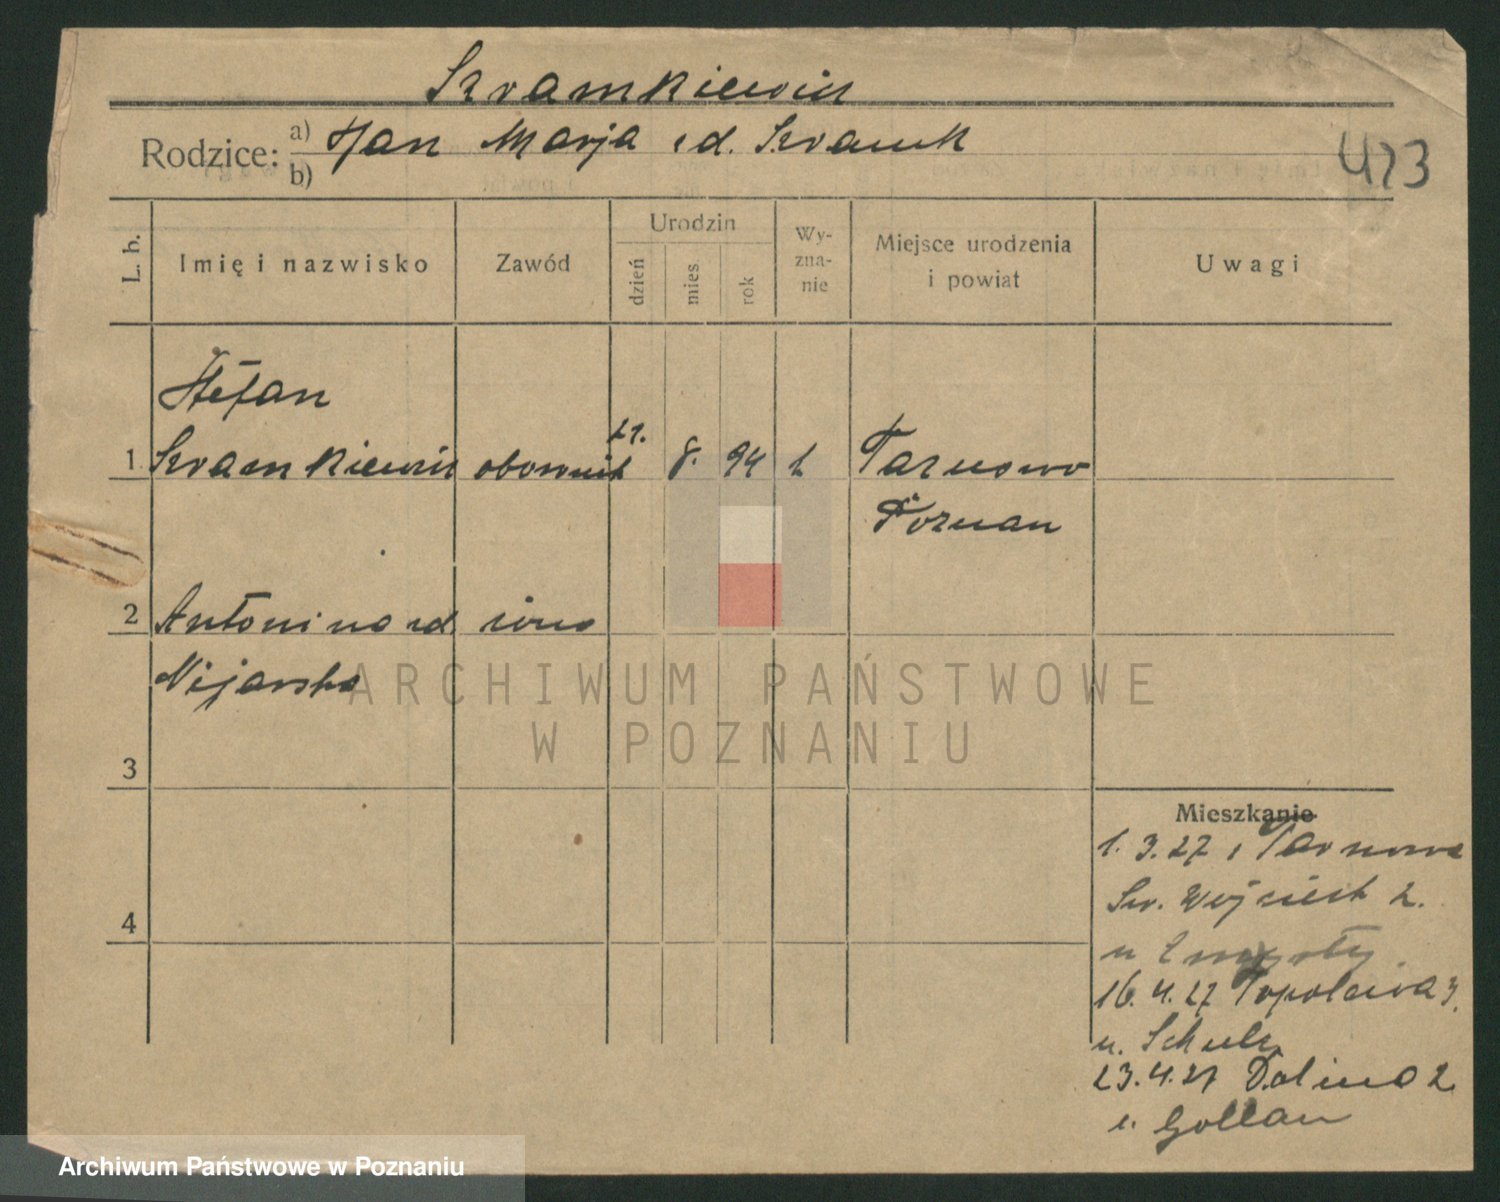 Szramkiewicz
Rodzice: a) Jan Marja zd. Szramek
b)
473
L. b.
Imię i nazwisko
Zawód
Urodzin
dzień
mies.
rok
Wy-
zna-
nie
Miejsce urodzenia
i powiat
Uwagi
Stefan
1 Szramkiewicz 21. 8. 94 k Tarnowo
Poznań
2 Antonina zd. żona
Nijarska
3
4
Mieszkanie
1. 3. 27 z Tarnowa
Św. Wojciech 2.
16. 4. 27 Topolowa 3.
u. Schulz
23. 4. 27 Dolina 2
u. Gollan
ARCHIWUM PAŃSTWOWE
W POZNANIU
Archiwum Państwowe w Poznaniu